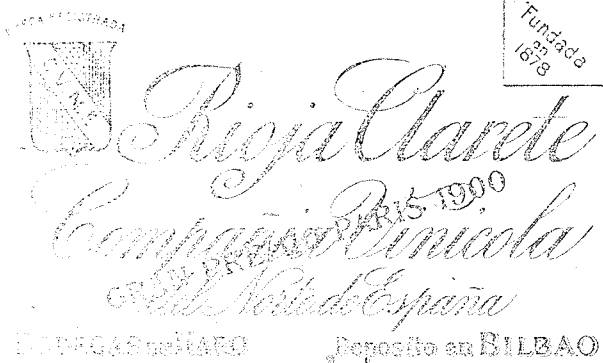 MARCA REGISTRADA
CVNE
Fundada
en
1878
Rioja Clarete
Compañia Vinicola
GRAN PREMIO PARIS 1900
del Norte de España
BODEGAS en HARO
Deposito en BILBAO